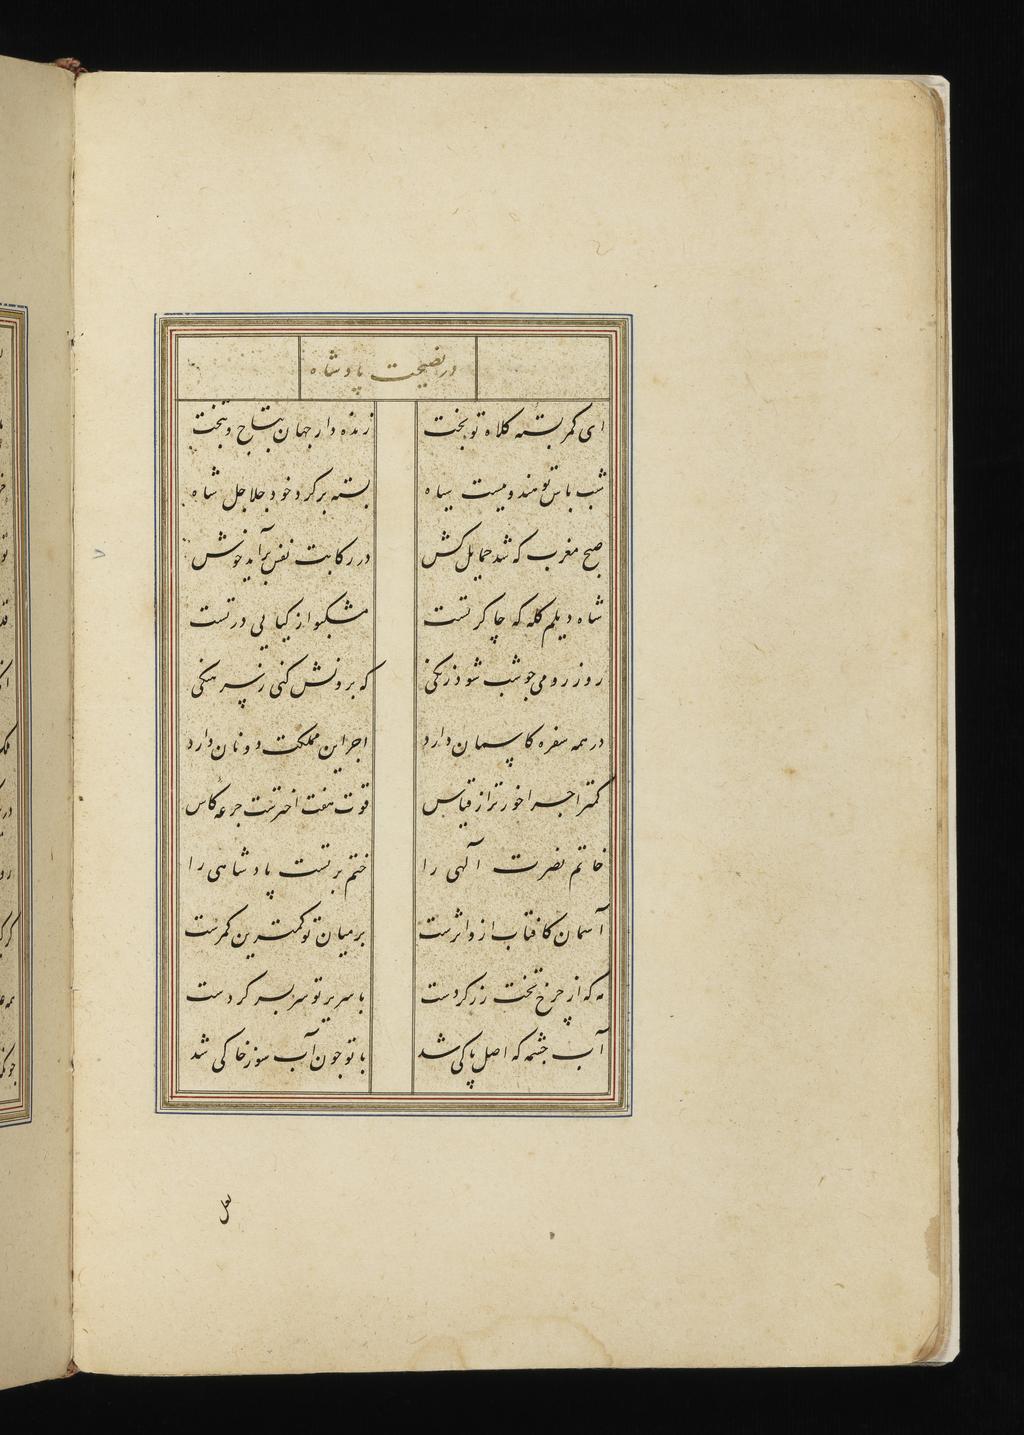 در نصیحت پادشاه
ای کمر بسته کلاه تو بخت زنده دار جهان بتاج و بتخت
شب باس تو هندویست سیاه بسته بر گرد خود جلاجل شاه
صبح مغرب که شد حمایل کش در رکابت نفس برآید خوش
شاه دیلم کله که چاکر تست مشکبو از کیایی در تست
روز رومی جو شب شود زنگی که برونش کنی ز سرهنگی
در همه سفره کاسمان دارد اجر این مملکت دو نان دارد
کمتر اجرا خورترا ز قیاس قوت هفت اخترست جرعه کاس
خاتم نصرت آلهی را ختم بر تست پادشاهی را
آسمان کافتاب ازو اثرست بر میان تو کمترین کمرست
مه که از چرخ تخت زر کردست با سریر تو سر بسر کردست
آب چشمه که اصل پاکی شد با تو جون آب سوز خاکی شد
لعل